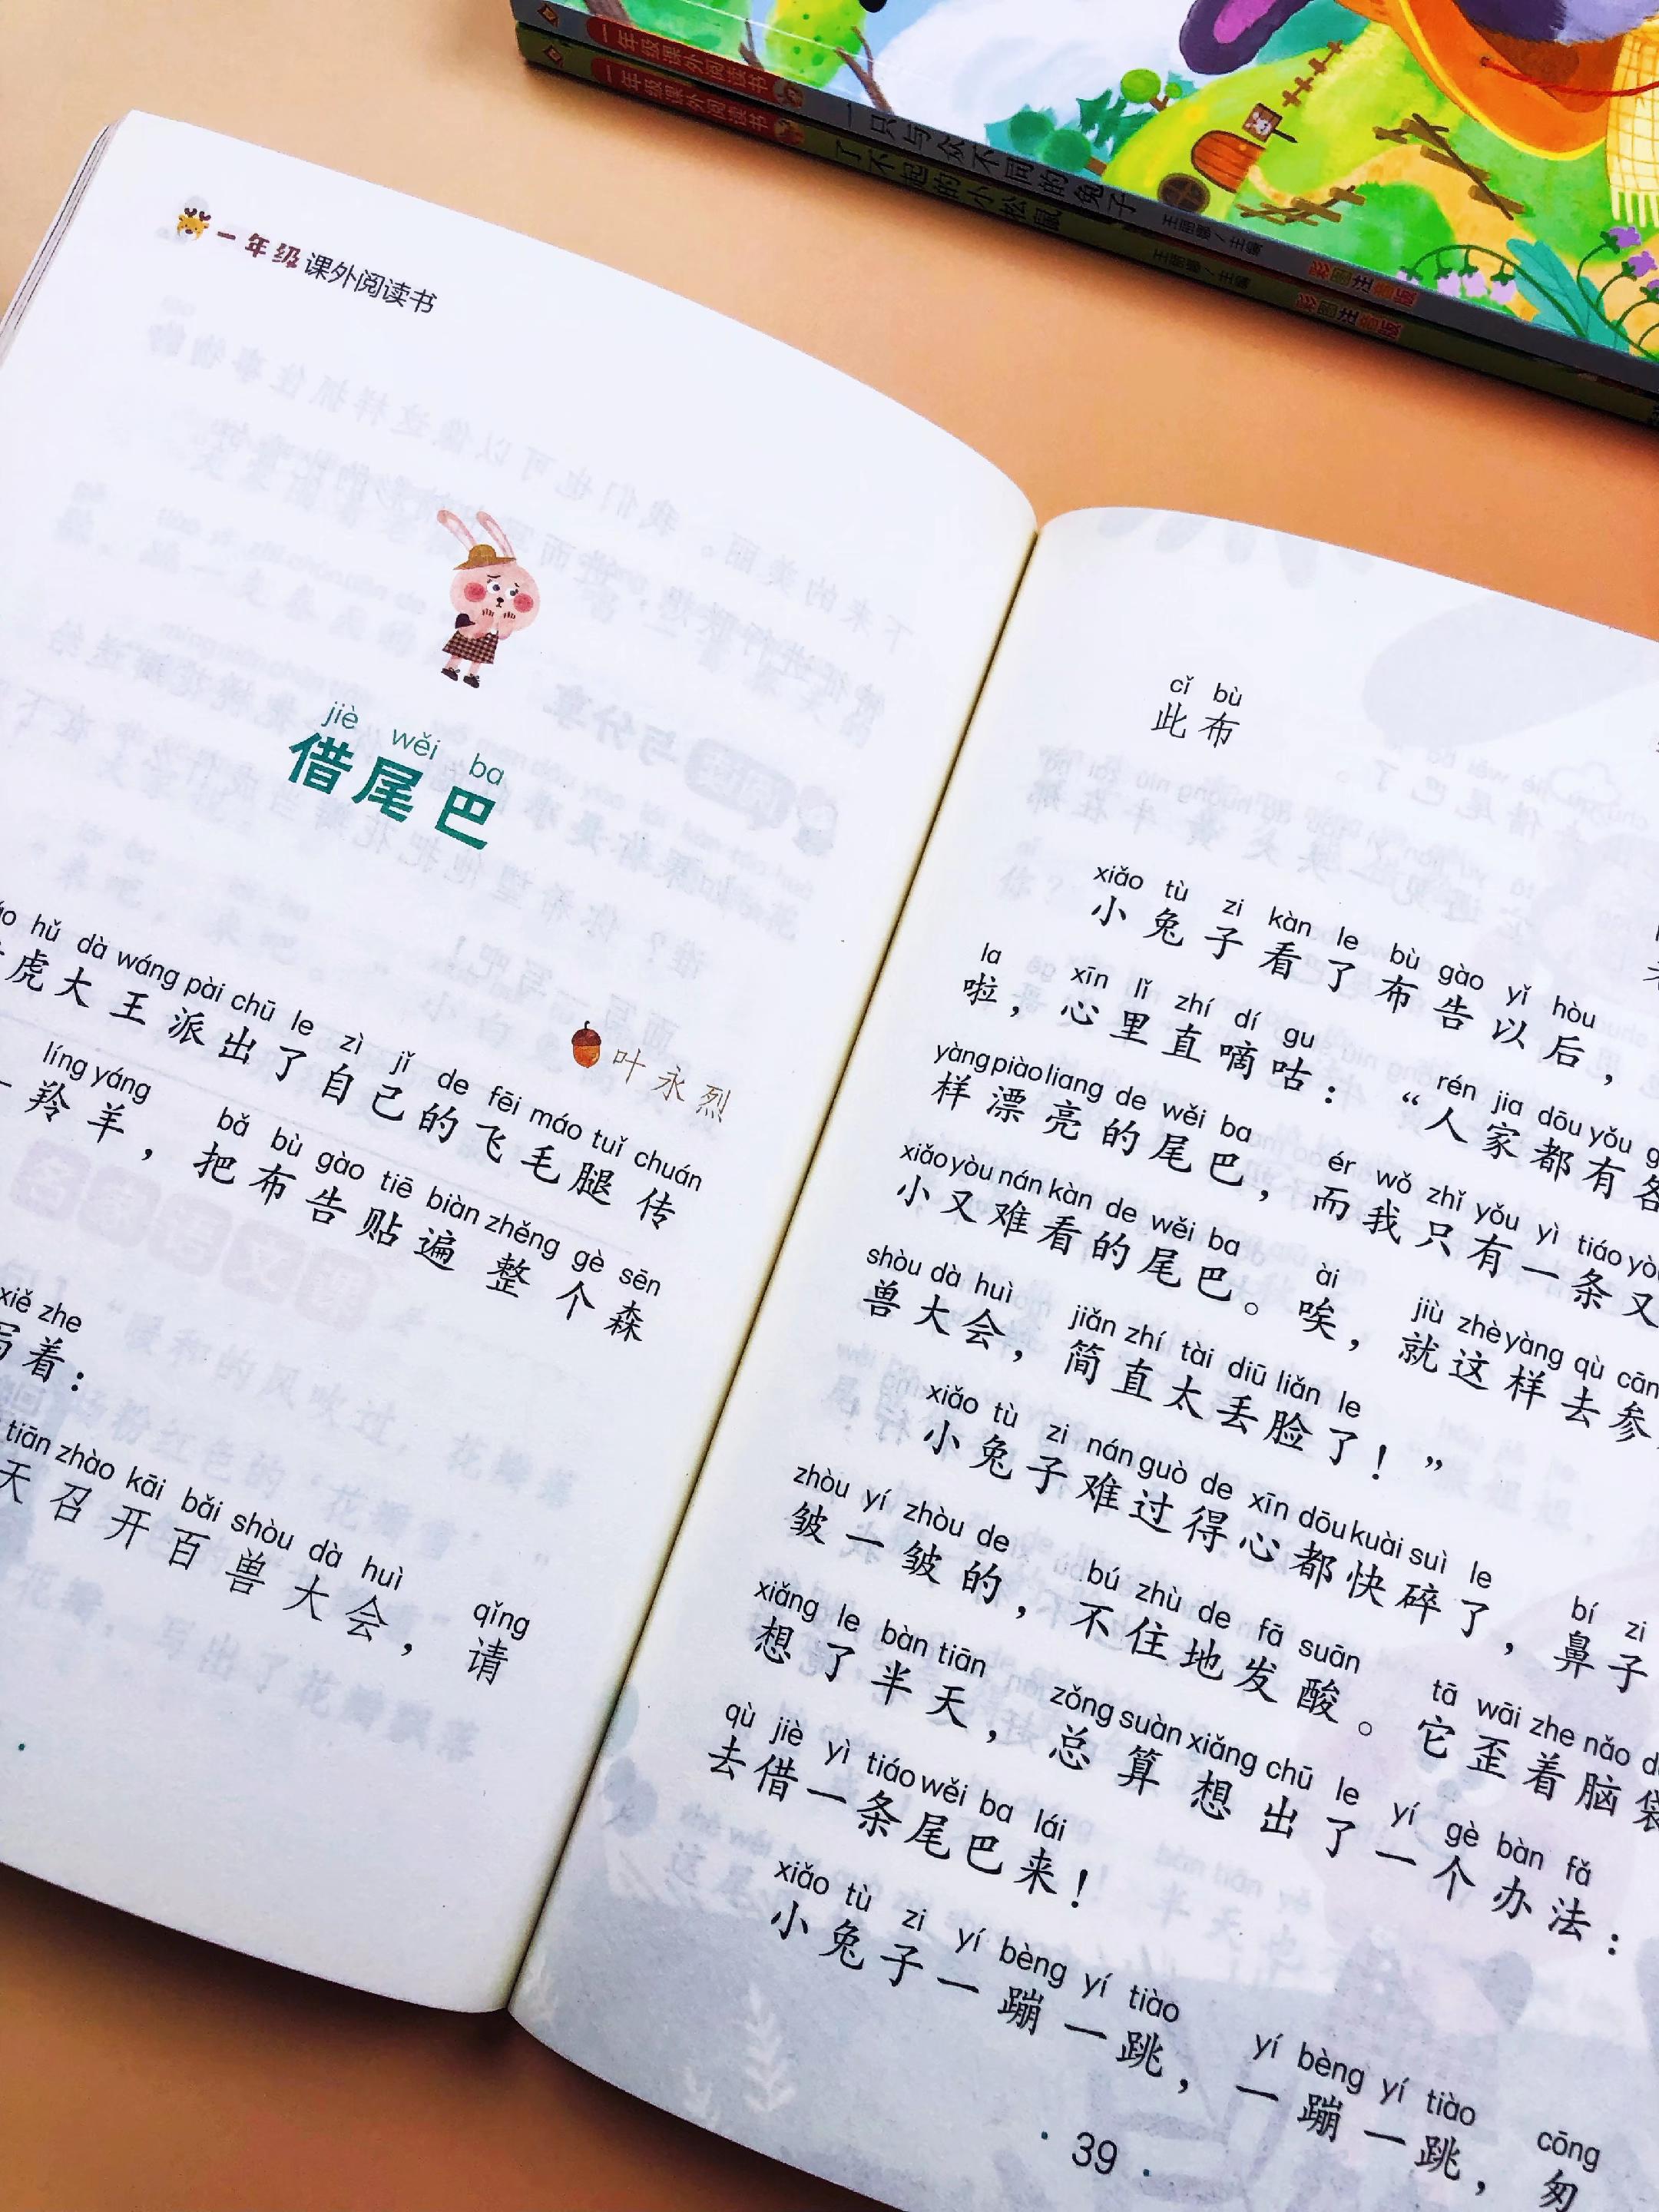 一年级课外阅读书
一只与众不同的兔子
王丽娜/主编
彩图注音版
一年级课外阅读书
了不起的小松鼠
王丽娜/主编
彩图注音版
一年级课外阅读书
jiè wěi ba
借尾巴
叶永烈
hǔ dà wáng pài chū le zì jǐ de fēi máo tuǐ chuán
虎大王派出了自己的飞毛腿传
líng yáng bǎ bù gào tiē biàn zhěng gè sēn
羚羊，把布告贴遍整个森
xiě zhe
写着：
tiān zhào kāi bǎi shòu dà huì qǐng
天召开百兽大会，请
cǐ bù
此布
xiǎo tù zi kàn le bù gào yǐ hòu
小兔子看了布告以后，
la xīn lǐ zhí dí gu rén jia dōu yǒu
啦，心里直嘀咕：“人家都有各
yàng piào liang de wěi ba ér wǒ zhǐ yǒu yì tiáo yòu
样漂亮的尾巴，而我只有一条又
xiǎo yòu nán kàn de wěi ba ài jiù zhè yàng qù cān
小又难看的尾巴。唉，就这样去参
shòu dà huì jiǎn zhí tài diū liǎn le
兽大会，简直太丢脸了！”
xiǎo tù zi nán guò de xīn dōu kuài suì le bí zi
小兔子难过得心都快碎了，鼻子
zhòu yí zhòu de bú zhù de fā suān tā wāi zhe nǎo
皱一皱的，不住地发酸。它歪着脑袋
xiǎng le bàn tiān zǒng suàn xiǎng chū le yí gè bàn fǎ
想了半天，总算想出了一个办法：
qù jiè yì tiáo wěi ba lái
去借一条尾巴来！
xiǎo tù zi yí bèng yí tiào yí bèng yí tiào cōng
小兔子一蹦一跳，一蹦一跳，匆
39